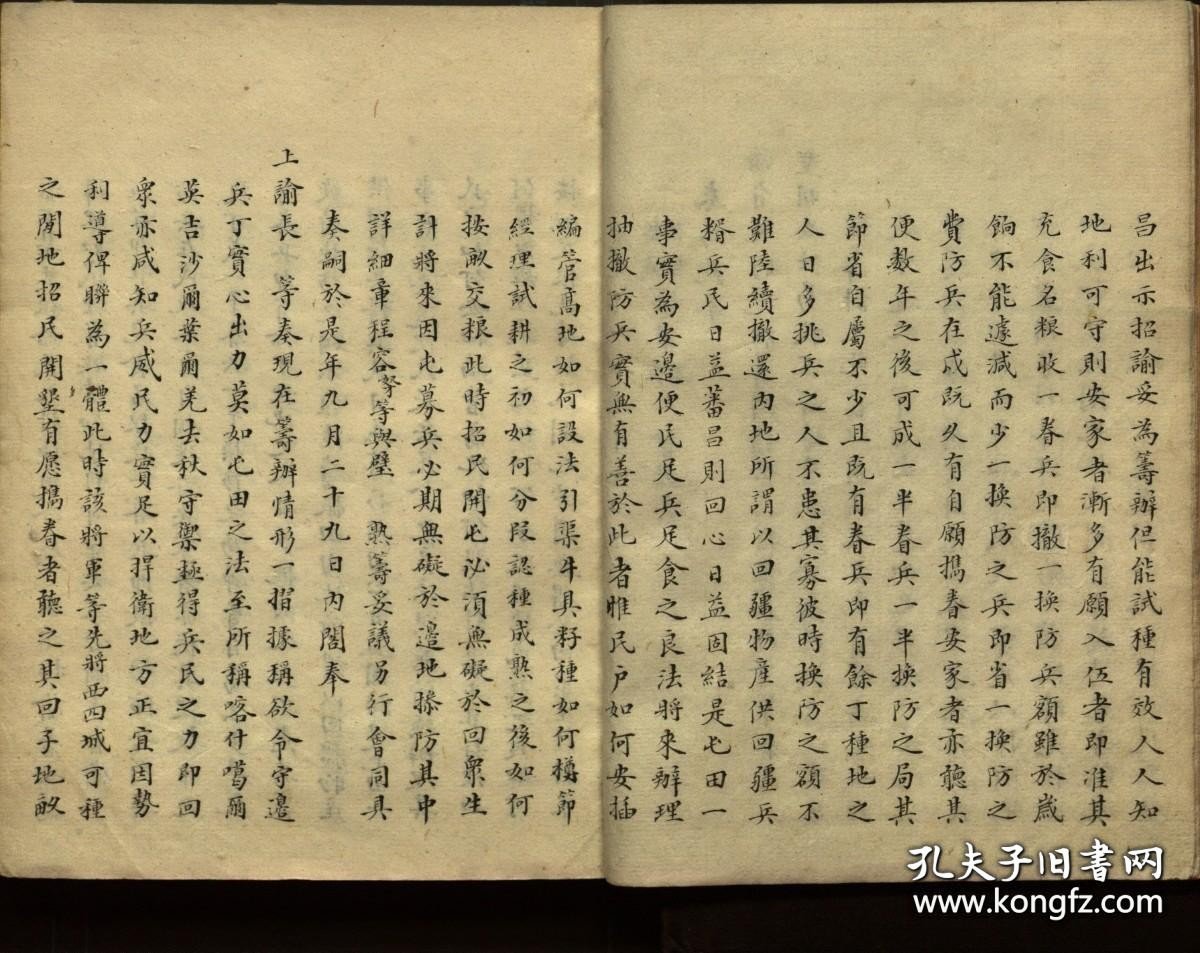 昌出示招諭妥為籌辦但能試種有效人人知
地利可守則安家者漸多有願入伍者即准其
充食名粮收一眷兵即撤一換防兵額雖於歲
餉不能遽減而少一換防之兵即省一換防之
費防兵在戍既久有自願携眷安家者亦聽其
便数年之後可成一半眷兵一半換防之局其
節省自屬不少且既有眷兵即有餘丁種地之
人日多挑兵之人不患其寡彼時換防之額不
難陸續撤還內地所謂以回疆物産供回疆兵
糈兵民日益蕃昌則回心日益固結是屯田一
事實為安邊便民足兵足食之良法將來辦理
抽撤防兵實無有善於此者惟民户如何安插
編管髙地如何設法引渠斗具籽種如何樽節
經理試耕之初如何分段認種成熟之後如何
按畝交粮此時招民開屯必須無礙於回衆生
計將來因屯募兵必期無礙於邉地操防其中
詳細章程容等與璧 熟籌妥議另行會同具
奏嗣於是年九月二十九日內閣奉
上諭長 等奏現在籌辦情形一摺據稱欲令守邉
兵丁實心出力莫如屯田之法至所稱喀什噶爾
英吉沙爾葉爾羌去秋守禦極得兵民之力即回
衆亦咸知兵威民力實足以捍衛地方正宜因勢
利導俾聯為一體此時該將軍等先將西四城可種
之閒地招民開墾有愿携眷者聽之其回子地畝
孔夫子旧书网
www.kongfz.com